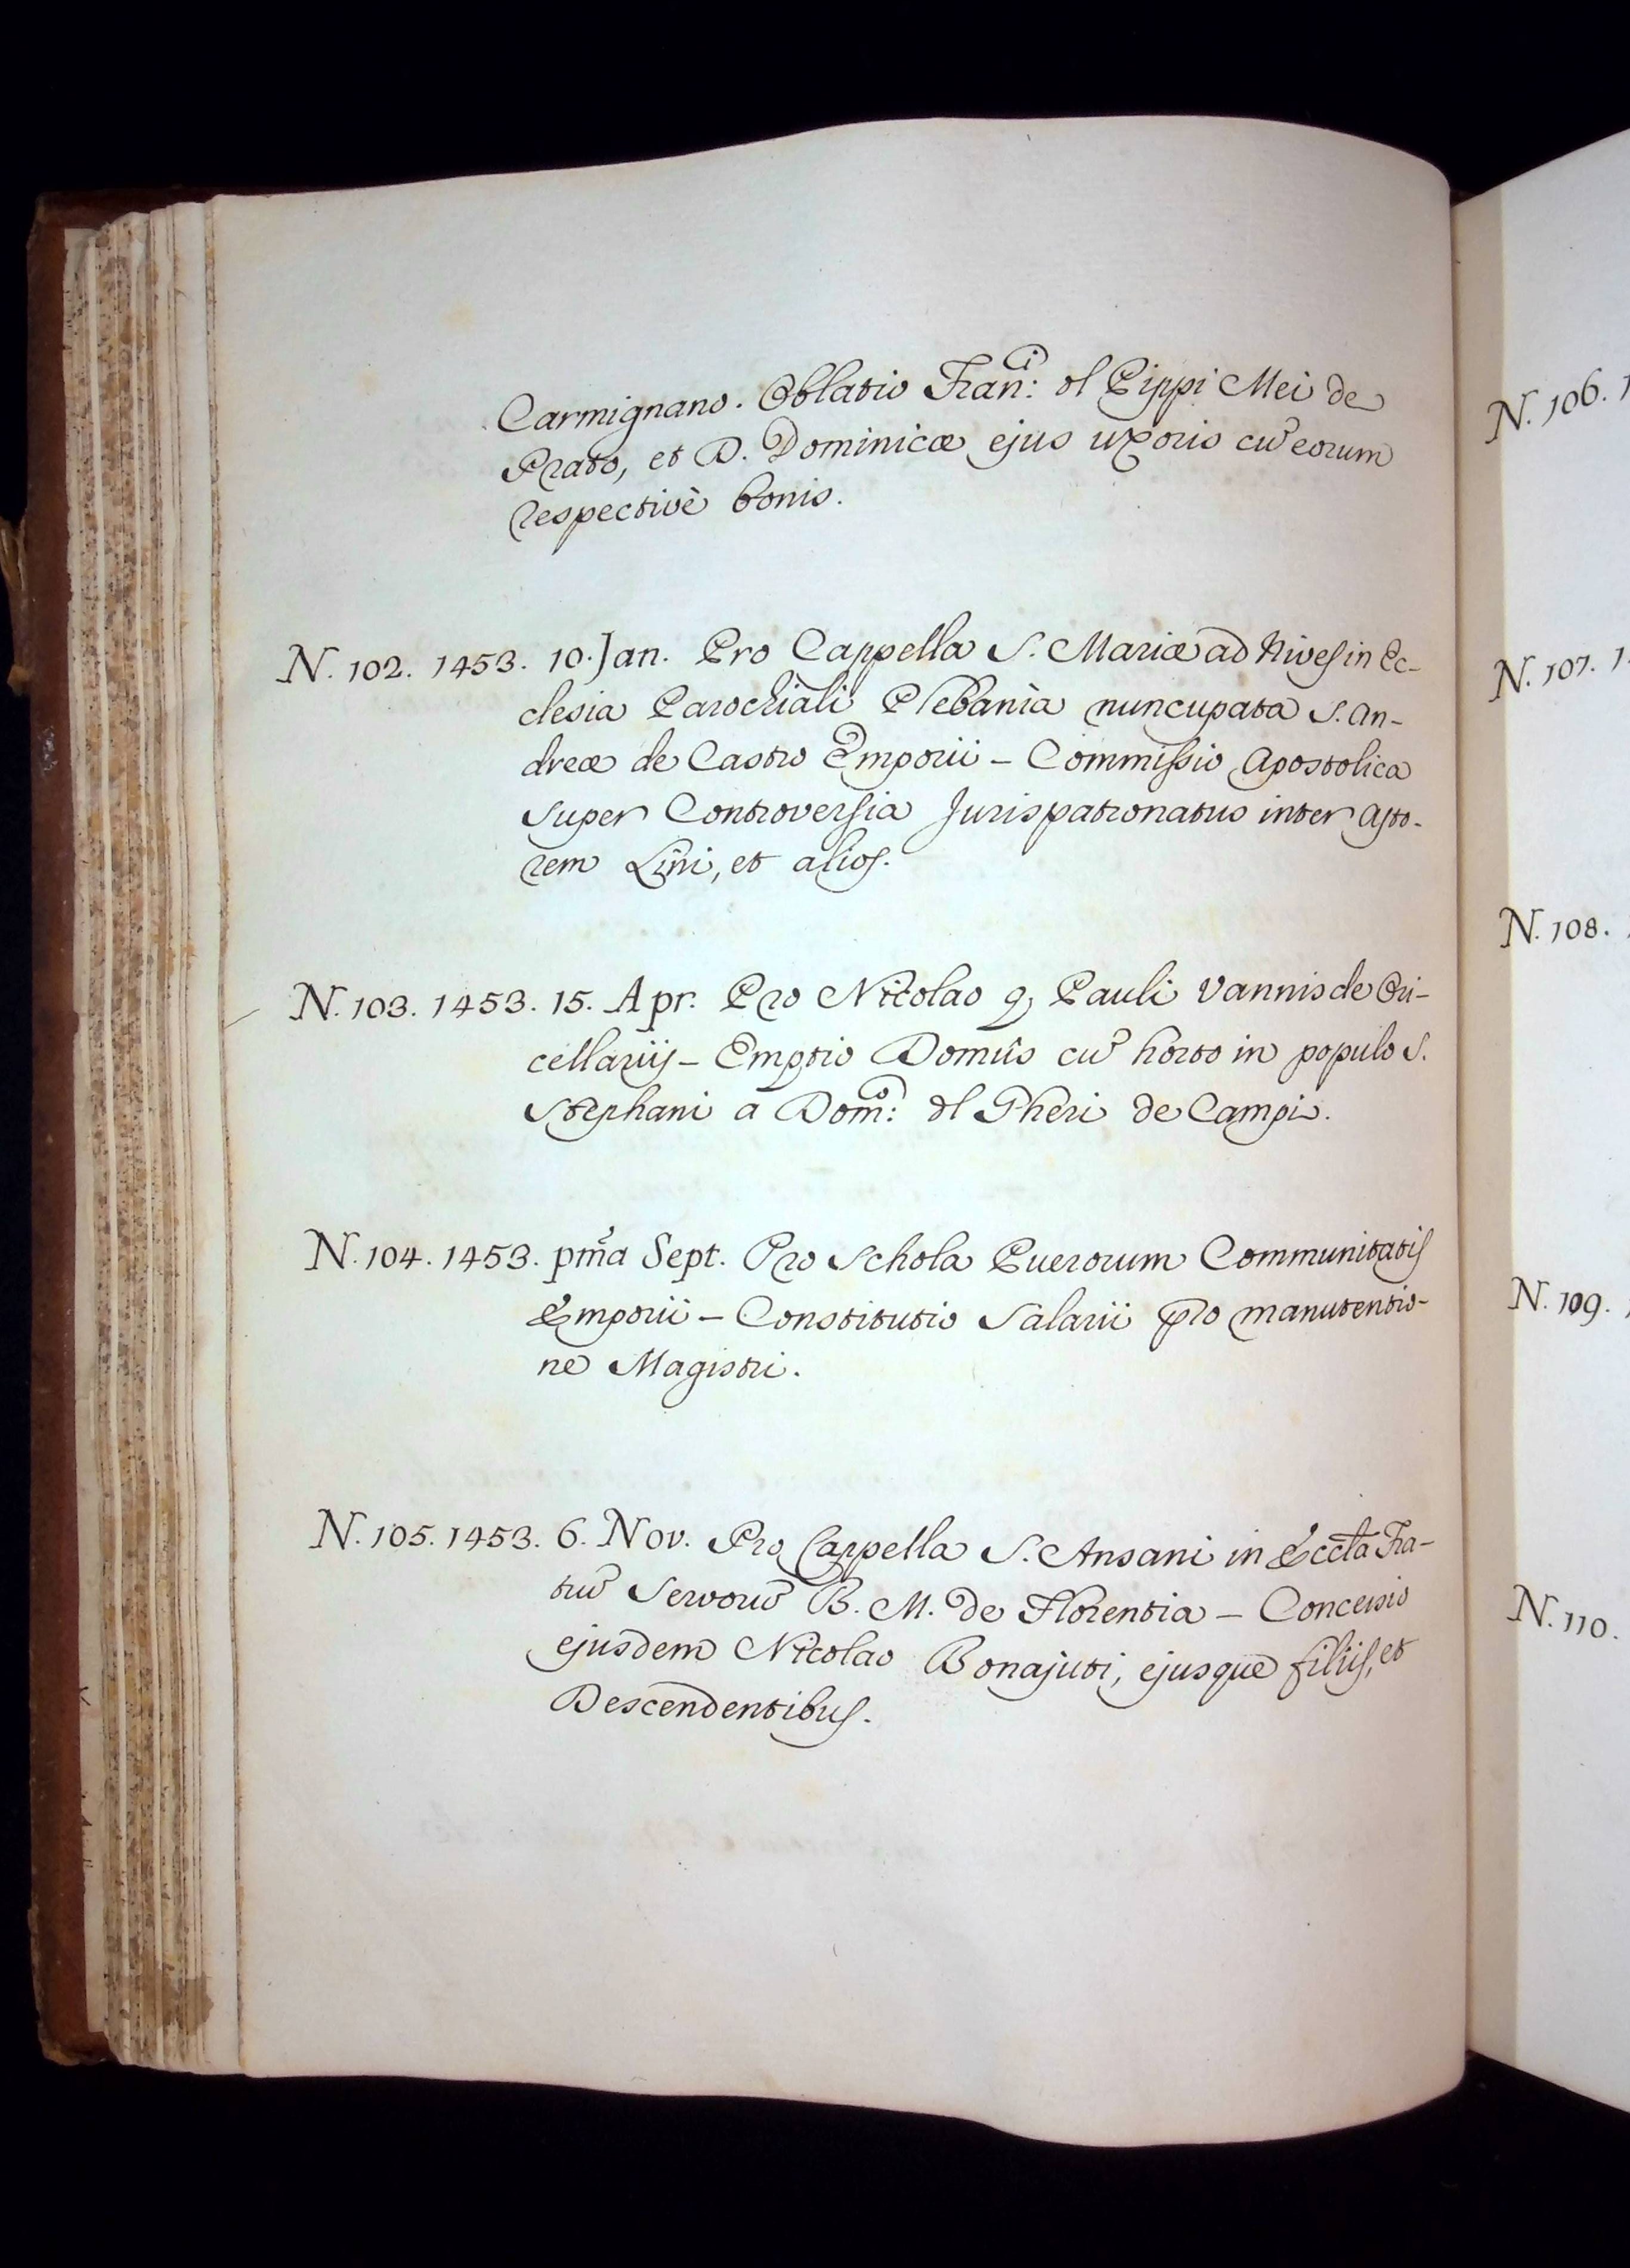 Carmignano. Oblatio Fran:ⁱ ol Pippi Mei de
Prato, et D. Dominicæ ejus uxoris cū eorum
respectivè bonis.
N. 102. 1453. 10. Jan. Pro Cappella S. Mariæ ad Nives in Ec-
clesia Parochiali Plebania nuncupata S. An-
dreæ de Castro Emporii – Commissio Apostolica
super Controversia Jurispatronatus inter Asto-
rem Lini, et alios.
N. 103. 1453. 15. Apr. Pro Nicolao q. Pauli Vannis de Ori-
cellarijs – Emptio Domûs cū horto in populo S.
Stephani a Dom:º ol Gheri de Campi.
N. 104. 1453. pm̃a Sept. Pro Schola Puerorum Communitatis
Emporii – Constitutio Salarii pro manutentio-
ne Magistri.
N. 105. 1453. 6. Nov. Pro Cappella S. Ansani in Eccl̃a Fra-
trū Servorū B. M. de Florentia – Concessio
ejusdem Nicolao Bonajuti, ejusque filiis, et
Descendentibus.
N. 106. 1
N. 107. 1
N. 108.
N. 109.
N. 110.